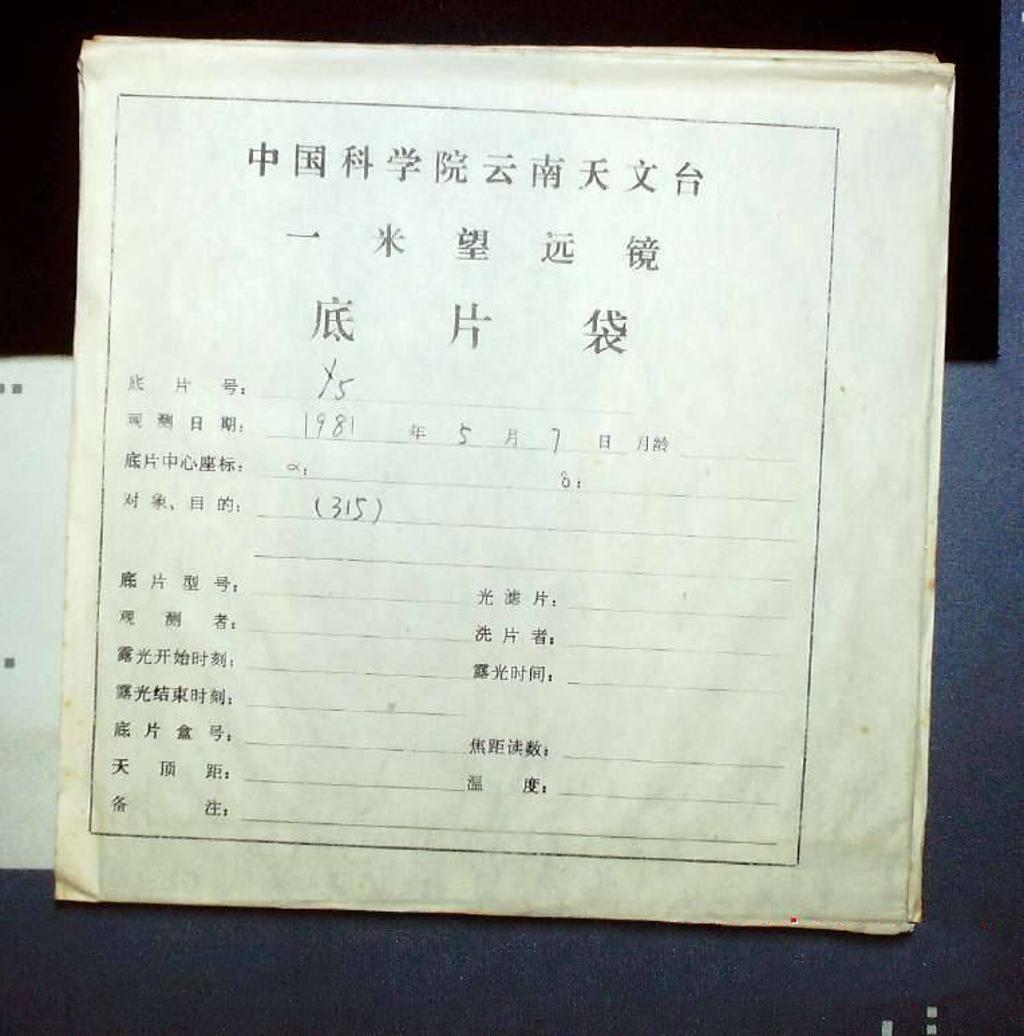 中国科学院云南天文台
一米望远镜
底片袋
底片号: Y5
观测日期: 1981年5月7日 月龄
底片中心座标: α: δ:
对象、目的: (315)
底片型号: 光滤片:
观测者: 洗片者:
露光开始时刻: 露光时间:
露光结束时刻:
底片盒号: 焦距读数:
天顶距: 温度:
备注: